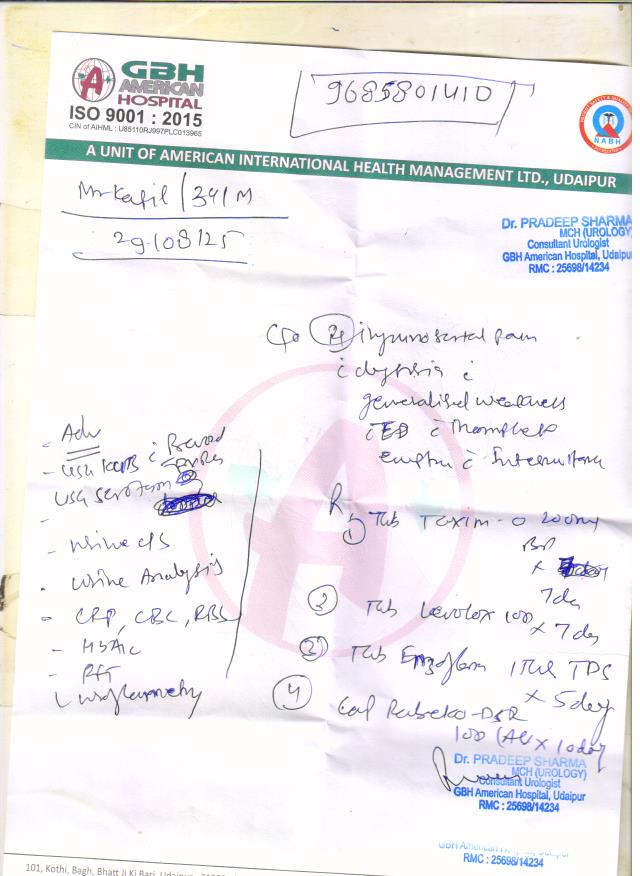 GBH
AMERICAN
HOSPITAL
ISO 9001 : 2015
CIN of AIHML : U85110RJ997PLC013965
9685801410
NABH
A UNIT OF AMERICAN INTERNATIONAL HEALTH MANAGEMENT LTD., UDAIPUR
Mr Kafil / 34 / M
29/08/25
Dr. PRADEEP SHARMA
MCH (UROLOGY)
Consultant Urologist
GBH American Hospital, Udaipur
RMC : 25698/14234
C/o pain
generalised weakness
c ED c Incomplete
c
Adv
- USG KUB c
USG Scrotum
- Urine C/S
- Urine Analysis
- CRP, CBC, RBS
- HbA1c
- RFT
Uroflowmetry
R
1) Tab Taxim-O 200mg
BD
x
7 day
2) Tab 100 x 7 day
3) Tab Enzoflam 1 TDS
x 5 day
4) Cap Rabeko-DSR
1 OD (AC) x 10 day
Dr. PRADEEP SHARMA
MCH (UROLOGY)
Consultant Urologist
GBH American Hospital, Udaipur
RMC : 25698/14234
GBH American Hospital, Udaipur
RMC : 25698/14234
101, Kothi, Bagh, Bhatt Ji Ki Bari, Udaipur